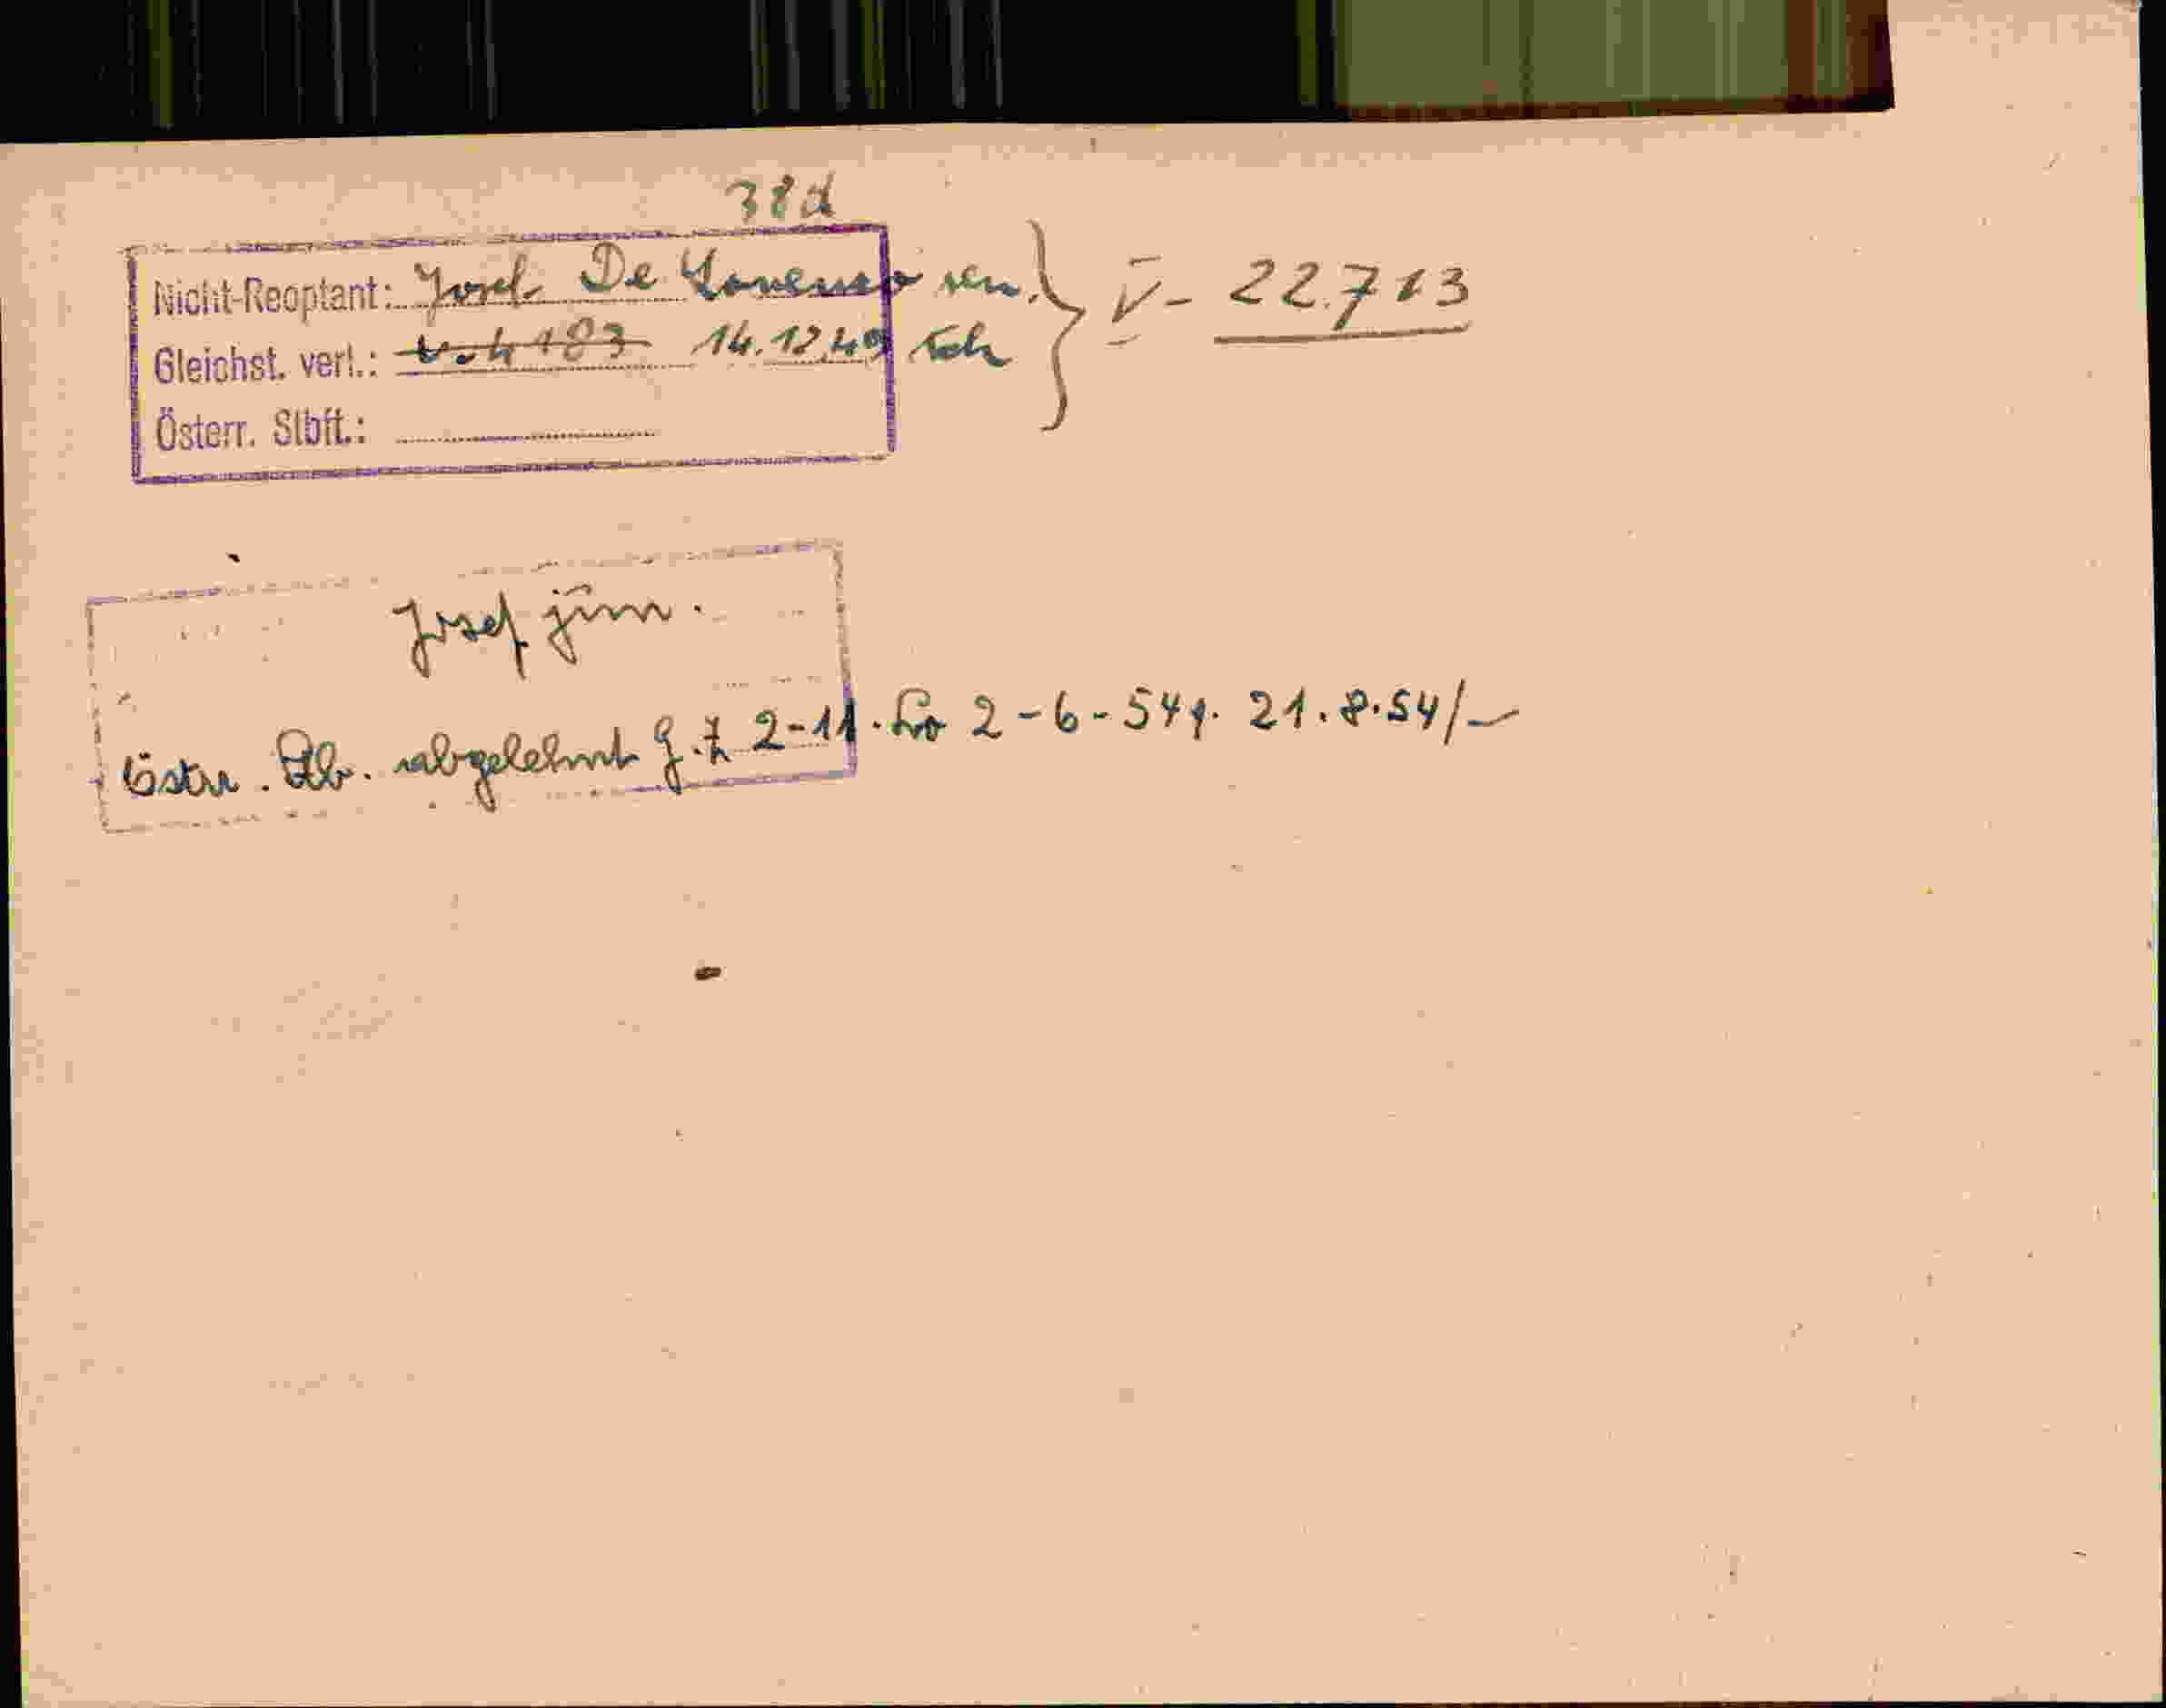 38d
Nicht-Reoptant: Josef De Lorenzo sen. } V - 22.713
Gleichst. verl.: 14.12.49 Sch
Österr. Stbft.:
Josef jun.
Österr. Stb. abgelehnt g. Z 2-11. Lo 2-6-54 v. 21.8.54/